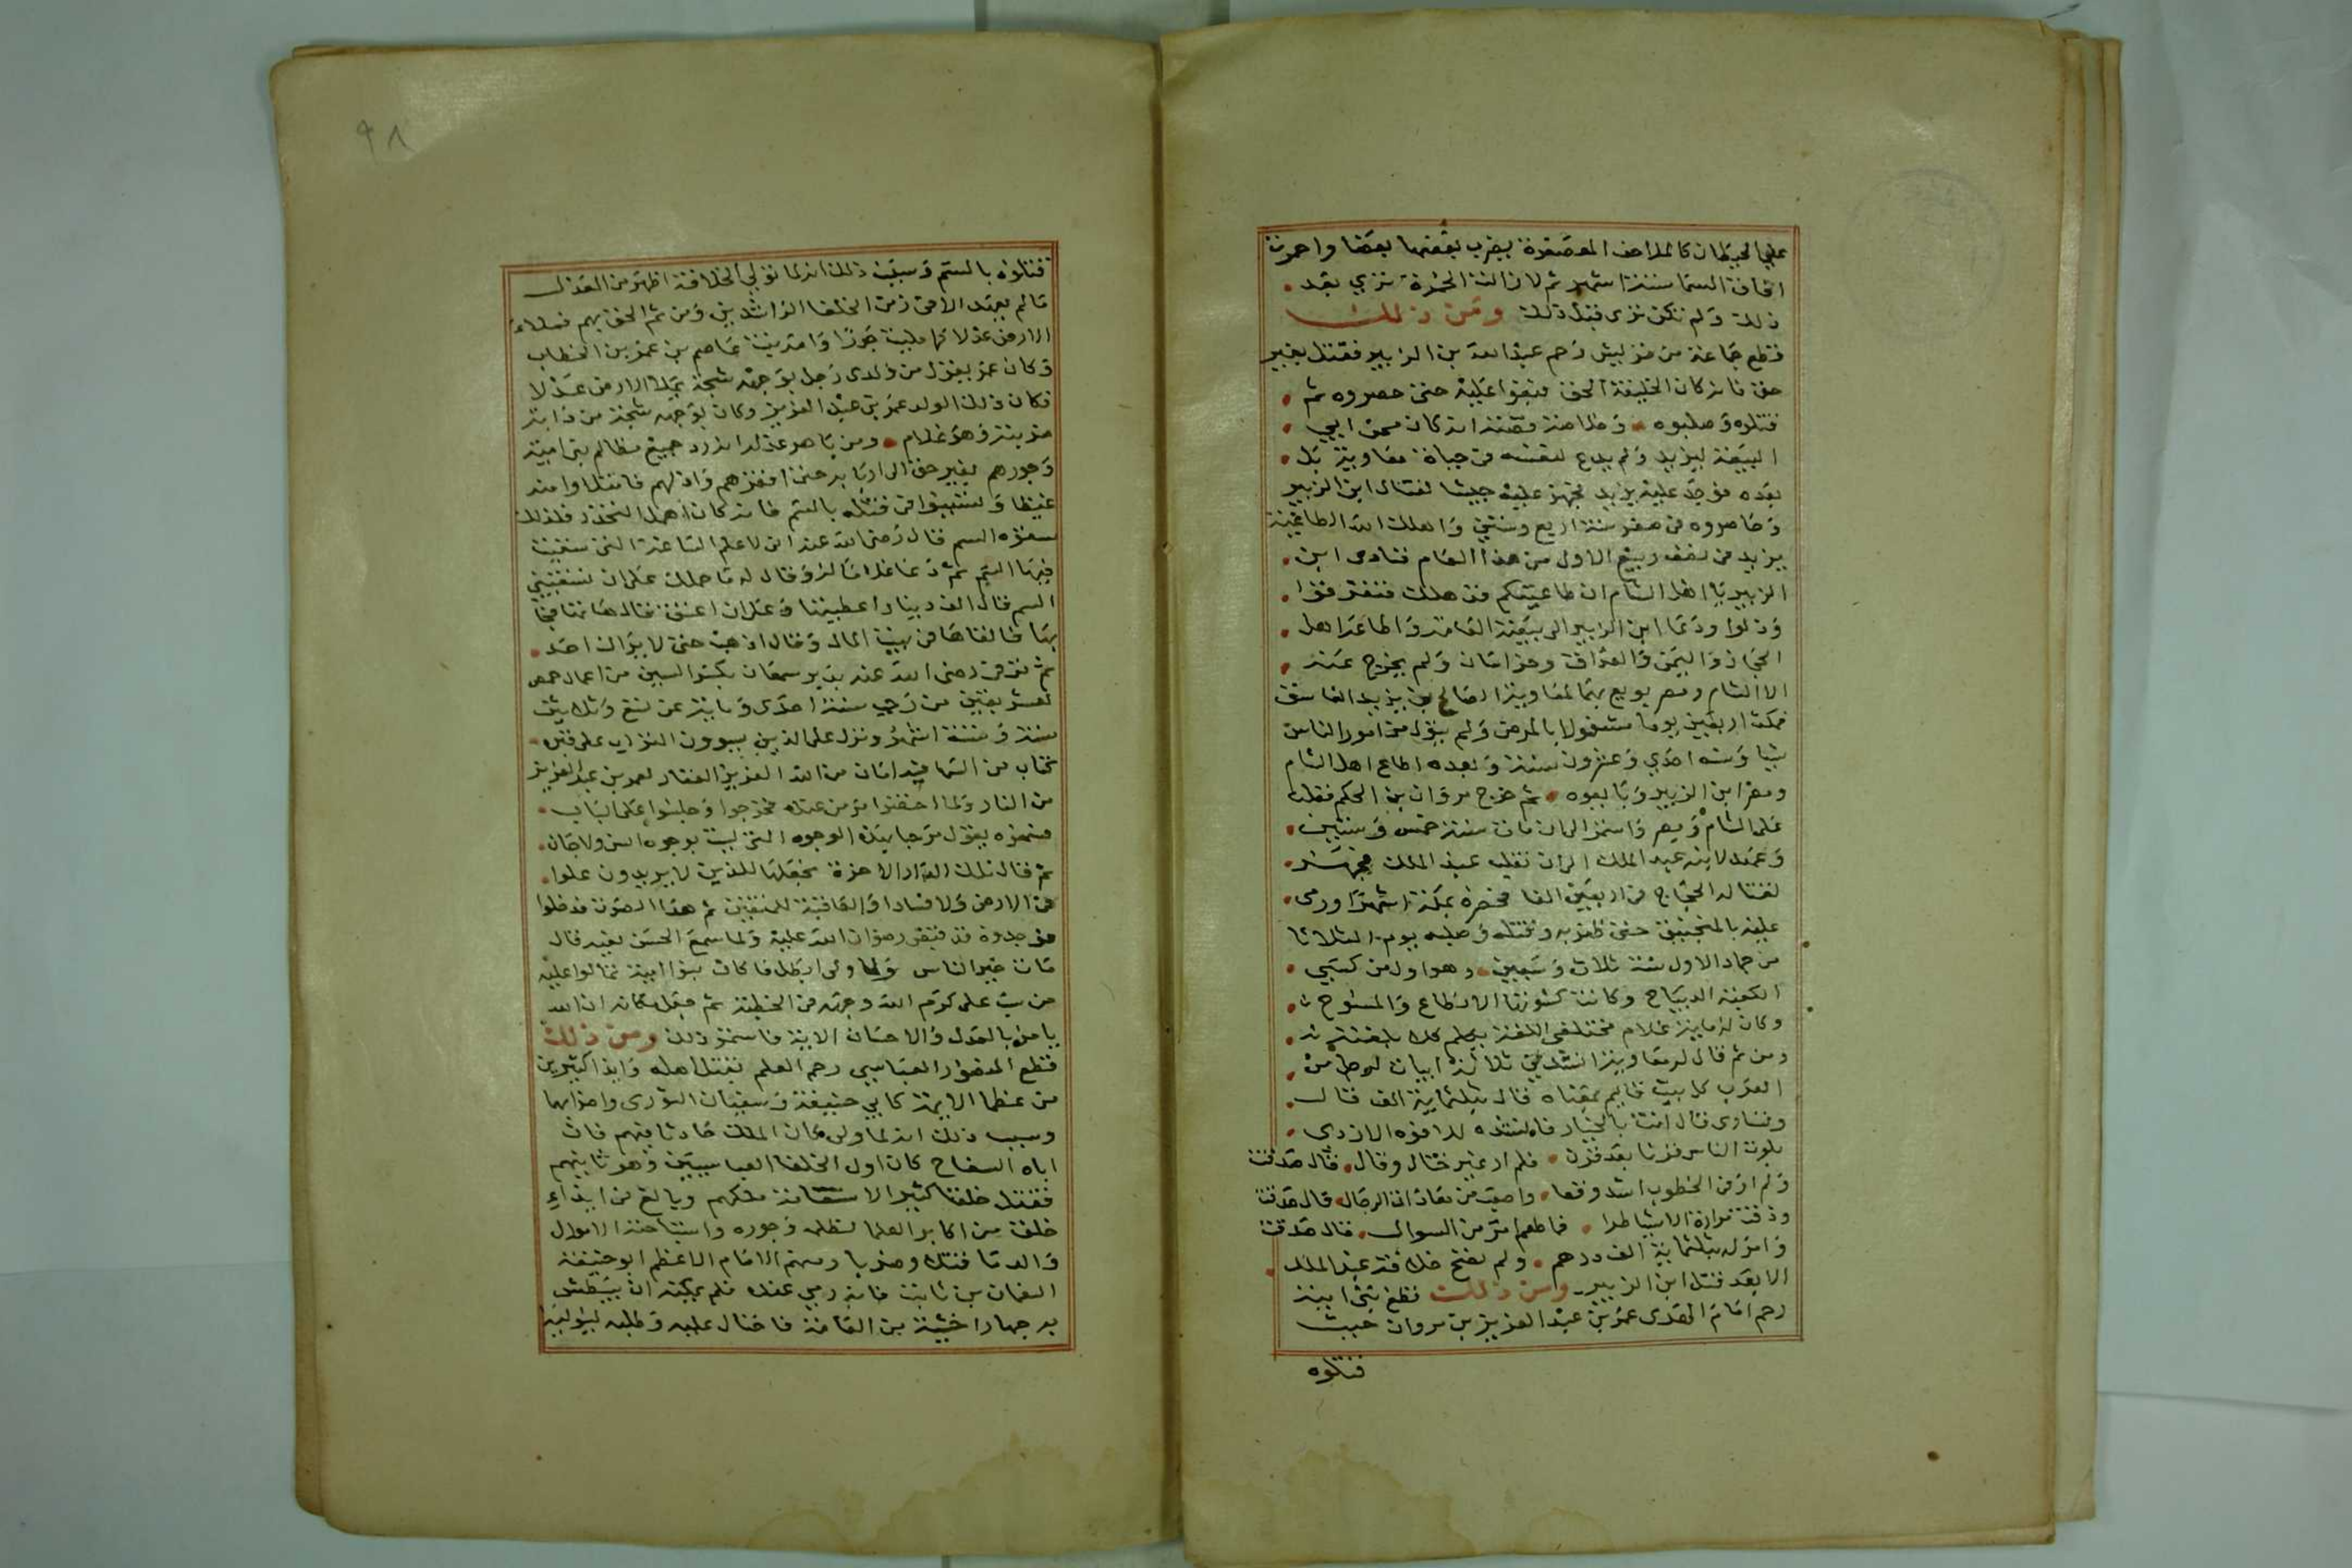 على الحيطان كالملاحف المعصفرة يضرب بعضها بعضا واحمرت
افاق السما ستة اشهر ثم لازالت الحمرة ترى بعد
ذلك ولم تكن ترى قبل ذلك ومن ذلك
قطع جماعة من قريش رحم عبد الله بن الزبير فقتل بغير
حق فانه كان الخليفة الحق فبغوا عليه حتى حصروه ثم
قتلوه وصلبوه وخلاصة قصته انه كان ممن ابى
البيعة ليزيد ولم يدع لنفسه في حياة معاوية بل
بعده فوجد عليه يزيد فجهز عليه جيشا لقتال ابن الزبير
وحاصروه في صفر سنة اربع وستين واهلك الله الطاغية
يزيد في نصف ربيع الاول من هذا العام فنادى ابن
الزبير يا اهل الشام ان طاغيتكم قد هلك فتفرقوا
وذلوا ودعا ابن الزبير الى بيعته العامة واطاعه اهل
الحجاز واليمن والعراق وخراسان ولم يخرج عنه
الا الشام ومصر بويع بهما لمعاوية الصالح بن يزيد الفاسق
فمكث اربعين يوما مشغولا بالمرض ولم يتول من امور الناس
شيا وسنه احدى وعشرون سنة وبعده اطاع اهل الشام
ومصر ابن الزبير وبايعوه ثم خرج مروان بن الحكم فغلب
على الشام ومصر واستمر الى ان مات سنة خمس وستين
وعهد لابنه عبد الملك الى ان تغلب عبد الملك فجهز
لقتاله الحجاج في اربعين الفا فحصره بمكة اشهرا ورمى
عليه بالمنجنيق حتى ظفر به وقتله وصلبه يوم الثلاثا
من جماد الاول سنة ثلاث وسبعين وهو اول من كسى
الكعبة الديباج وكانت كسوتها الانطاع والمسوح
وكان له ماية غلام مختلفي اللغة يكلم كلا بلغته
ومن ثم قال له معاوية انشدني ثلاثة ابيات
العرب كل بيت قايم بمعناه قال بثلثماية الف قال
وتساوى قال انت بالخيار فانشده للافوه الازدي
بلوت الناس قرنا بعد قرن فلم ار غير ختال وقال قال صدقت
ولم ار في الخطوب اشد وقعا واصعب من معادات الرجال قال صدقت
وذقت مرارة الاشيا طرا فما طعم امر من السوال قال صدقت
وامر له بثلثماية الف درهم ولم تفتح خلافة عبد الملك
الا بعد قتل ابن الزبير ومن ذلك قطع بني امية
رحم امام الهدى عمر بن عبد العزيز بن مروان حيث
قتلوه
٩٨
قتلوه بالسم وسبب ذلك انه لما تولى الخلافة اظهر من العدل
ما لم يعهد الا في زمن الخلفا الراشدين ومن ثم الحق بهم فملاء
الارض عدلا كما مليت جورا وامه بنت عاصم بن عمر بن الخطاب
وكان عمر يقول من ولدى رجل بوجهه شجة يملا الارض عدلا
فكان ذلك الولد عمر بن عبد العزيز وكان بوجهه شجة من دابة
ضربته وهو غلام ومن باهر عدله انه رد جميع مظالم بني امية
وجورهم بغير حق الى اربابه حتى افقرهم واذلهم فامتلاوا منه
غيظا وتسببوا في قتله بالسم فانه كان اهمل التحذر فلذلك
سقوه السم قال رضى الله عنه انى لاعلم الساعة التي سقيت
فيها السم ثم دعا غلاما له وقال له ما حملك على ان تسقيني
السم قال الف دينار اعطيتها وعلى ان اعتق فقال هاتها فجا
بها فالقاها في بيت المال وقال اذهب حتى لا يراك احد
ثم توفى رضى الله عنه بدير سمعان بكسر السين من اعمال حمص
لعشر بقين من رجب سنة احدى وماية عن تسع وثلاثين
سنة وستة اشهر ونزل على الذين يسوون التراب على قبره
كتاب من السما فيه امان من الله العزيز الغفار لعمر بن عبد العزيز
من النار ولما احتضر امر من عنده فخرجوا وجلسوا على الباب
فسمعوه يقول مرحبا بهذه الوجوه التي ليست بوجوه انس ولا جان
ثم قال تلك الدار الاخرة نجعلها للذين لا يريدون علوا
في الارض ولا فسادا والعاقبة للمتقين ثم هدا الصوت فدخلوا
فوجدوه قد قبض رضوان الله عليه ولما سمع الحسن بنعيه قال
مات خير الناس ولما ولى ابطل ما كان بنوا امية تمالوا عليه
من سب على كرم الله وجهه في الخطبة ثم جعل مكانه ان الله
يامر بالعدل والاحسان الاية فاستمر ذلك ومن ذلك
قطع المنصور العباسي رحم العلم بقتل اهله وايذا كثيرين
من عظما الايمة كابي حنيفة وسفيان الثورى واضرابهما
وسبب ذلك انه لما ولى كان الملك حادثا فيهم فان
اباه السفاح كان اول الخلفا العباسيين وهو ثانيهم
فقتل خلقا كثيرا لاستقامة ملكهم وبالغ في ايذاء
خلق من اكابر العلما لظلمه وجوره واستباحته الاموال
والدما قتلا وضربا ومنهم الامام الاعظم ابو حنيفة
النعمان بن ثابت فانه رمي عنده فلم يمكنه ان يبطش
به جهارا خشية من العامة فاحتال عليه وطلبه ليوليه